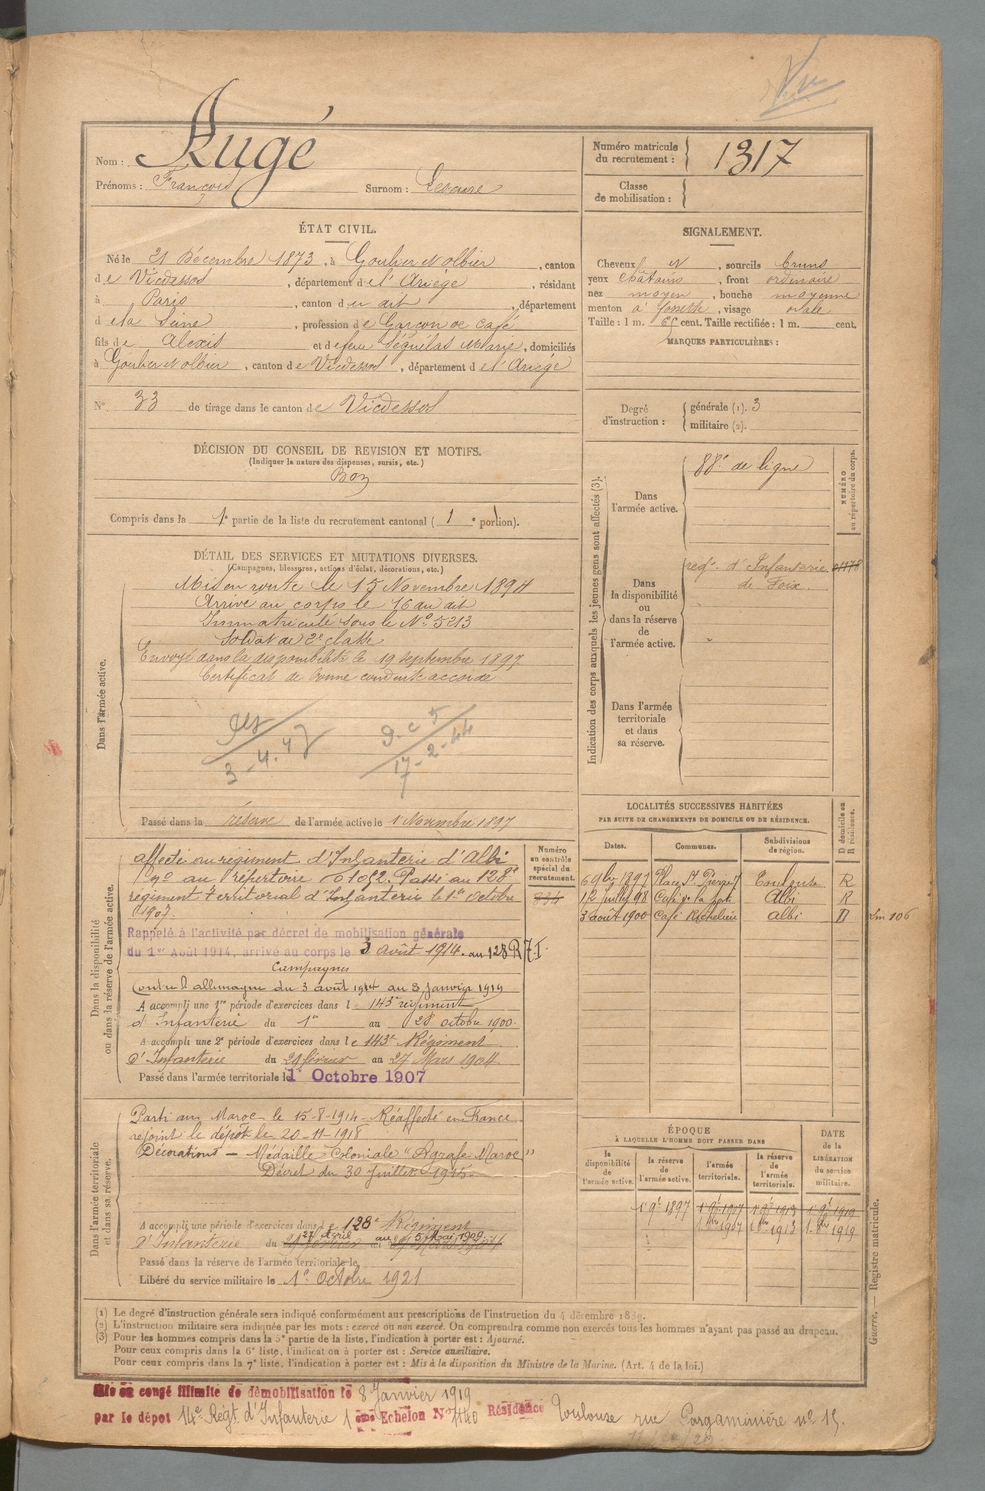 Nom : Augé
Prénoms : François Surnom :
Numéro matricule du recrutement : 1317
Classe de mobilisation :
ÉTAT CIVIL.
Né le 21 Décembre 1873, à Goulier et Olbier, canton
de Vicdessos, département de l'Ariège, résidant
à Paris, canton de du dit, département
de la Seine, profession de Garçon de café
fils de Alexis et de feue Séguélas Marie, domiciliés
à Goulier et Olbier, canton de Vicdessos, département de l'Ariège
N° 33 de tirage dans le canton de Vicdessos
SIGNALEMENT.
Cheveux, sourcils bruns
yeux châtains, front ordinaire
nez moyen, bouche moyenne
menton à fossette, visage ovale
Taille : 1 m. 65 cent. Taille rectifiée : 1 m. cent.
MARQUES PARTICULIÈRES :
Degré d'instruction : générale (1). 3
militaire (2).
DÉCISION DU CONSEIL DE REVISION ET MOTIFS.
(Indiquer la nature des dispenses, sursis, etc.)
Bon
Compris dans la 1e partie de la liste du recrutement cantonal (1e portion).
DÉTAIL DES SERVICES ET MUTATIONS DIVERSES.
(Campagnes, blessures, actions d'éclat, décorations, etc.)
Dans l'armée active.
Mis en route le 15 Novembre 1894
Arrivé au corps le 16 du dit
Immatriculé sous le N° 5213
Soldat de 2e classe
Envoyé dans la disponibilité le 19 septembre 1897
Certificat de bonne conduite accordé
3-4.47
17-2-44
Passé dans la réserve de l'armée active le 1 Novembre 1897
Indication des corps auxquels les jeunes gens sont affectés (3).
NUMÉRO au répertoire du corps.
Dans l'armée active.
88e de ligne
Dans la disponibilité ou dans la réserve de l'armée active.
régt. d'Infanterie
de Foix
Dans l'armée territoriale et dans sa réserve.
Dans la disponibilité ou dans la réserve de l'armée active.
Numéro au contrôle spécial du recrutement.
834
affecté au régiment d'Infanterie d'Albi
n° au répertoire 01052. Passé au 128e
régiment territorial d'Infanterie le 1er octobre
1907.
Rappelé à l'activité par décret de mobilisation générale
du 1er Août 1914, arrivé au corps le 3 août 1914. au 128 R.T.I.
Campagnes
Contre l'allemagne du 3 août 1914 au 8 janvier 1919
A accompli une 1re période d'exercices dans le 143e régiment
d'Infanterie du 1er au 28 octobre 1900.
A accompli une 2e période d'exercices dans le 143e Régiment
d'Infanterie du 29 février au 27 Mars 1904
Passé dans l'armée territoriale le 1er Octobre 1907
LOCALITÉS SUCCESSIVES HABITÉES
PAR SUITE DE CHANGEMENTS DE DOMICILE OU DE RÉSIDENCE.
Dates. Communes. Subdivisions de région. D domicile ou R résidence.
6 9bre 1897 Toulouse R
12 juillet 98 Café de la Albi R
3 août 1900 Café Richelieu Albi D
Dans l'armée territoriale et dans sa réserve.
Parti au Maroc le 15-8-1914 Réaffecté en France
rejoint le dépôt le 20-11-1918
Décorations — Médaille Coloniale "Agrafe Maroc"
Décret du 30 juillet 1915
A accompli une période d'exercices dans le 128e Régiment
d'Infanterie du 27 avril au 5 Mai 1909
Passé dans la réserve de l'armée territoriale le
Libéré du service militaire le 1er Octobre 1921
ÉPOQUE
À LAQUELLE L'HOMME DOIT PASSER DANS
la disponibilité de l'armée active. la réserve de l'armée active. l'armée territoriale. la réserve de l'armée territoriale.
DATE de la LIBÉRATION du service militaire.
Guerre. — Registre matricule.
(1) Le degré d'instruction générale sera indiqué conformément aux prescriptions de l'instruction du 4 décembre 1889.
(2) L'instruction militaire sera indiquée par les mots : exercé ou non exercé. On comprendra comme non exercés tous les hommes n'ayant pas passé au drapeau.
(3) Pour les hommes compris dans la 5e partie de la liste, l'indication à porter est : Ajourné.
Pour ceux compris dans la 6e liste, l'indication à porter est : Service auxiliaire.
Pour ceux compris dans la 7e liste, l'indication à porter est : Mis à la disposition du Ministre de la Marine. (Art. 4 de la loi.)
Mis en congé illimité de démobilisation le 8 Janvier 1919
par le dépôt 14e Régt. d'Infanterie 1er Echelon N° 440 Résidence Toulouse rue Pargaminière n° 15.